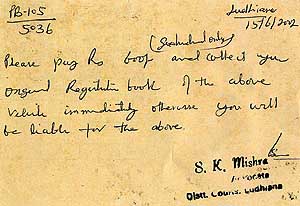 PB-105
5036
Ludhiana
15/6/2002
(Six hundred only)
Please pay Rs 600/- and collect your
original Registration book of the above
vehicle immediately otherwise you will
be liable for the above.
S. K. Mishra
Advocate
Distt. Courts, Ludhiana